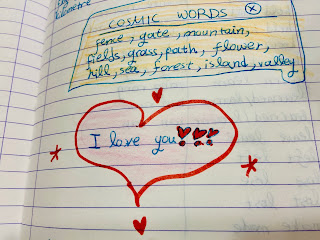 kilometre
COSMIC WORDS
fence, gate, mountain,
fields, grass, path, flower,
hill, sea, forest, island, valley
I love you